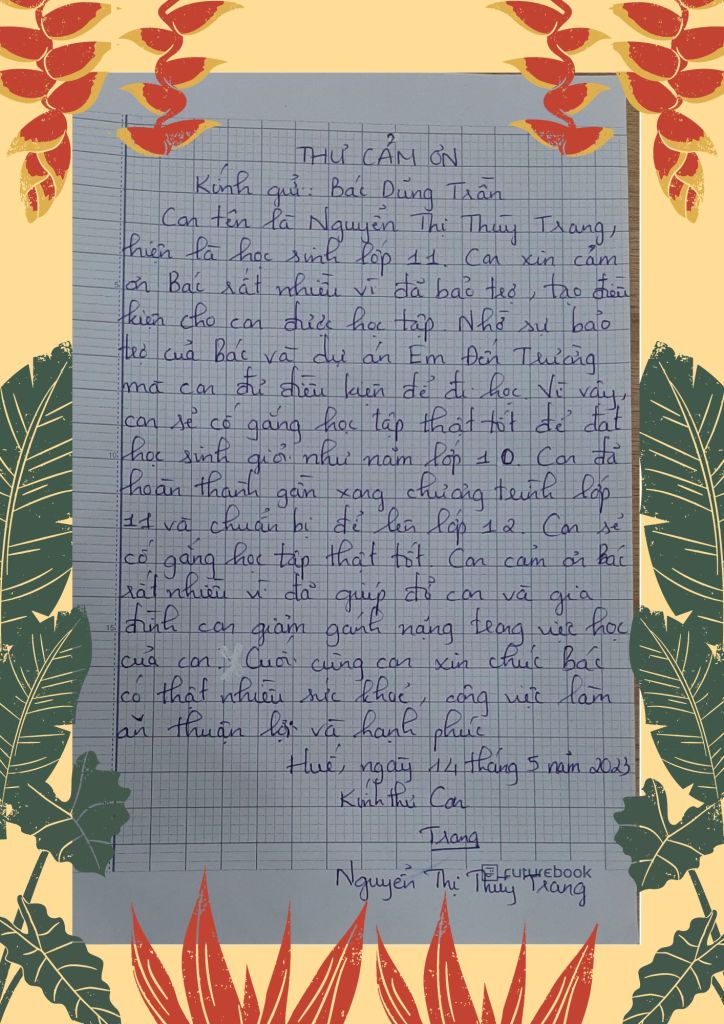 THƯ CẢM ƠN
Kính gửi: Bác Dũng Trần
Con tên là Nguyễn Thị Thùy Trang,
hiện là học sinh lớp 11. Con xin cảm
ơn Bác rất nhiều vì đã bảo trợ, tạo điều
kiện cho con được học tập. Nhờ sự bảo
trợ của Bác và dự án Em Đến Trường
mà con đủ điều kiện để đi học. Vì vậy,
con sẽ cố gắng học tập thật tốt để đạt
học sinh giỏi như năm lớp 10. Con đã
hoàn thành gần xong chương trình lớp
11 và chuẩn bị để lên lớp 12. Con sẽ
cố gắng học tập thật tốt. Con cảm ơn Bác
rất nhiều vì đã giúp đỡ con và gia
đình con giảm gánh nặng trong việc học
của con. Cuối cùng con xin chúc Bác
có thật nhiều sức khoẻ, công việc làm
ăn thuận lợi và hạnh phúc
Huế, ngày 14 tháng 5 năm 2023
Kính thư Con
Trang
FUTUREBOOK
Nguyễn Thị Thùy Trang